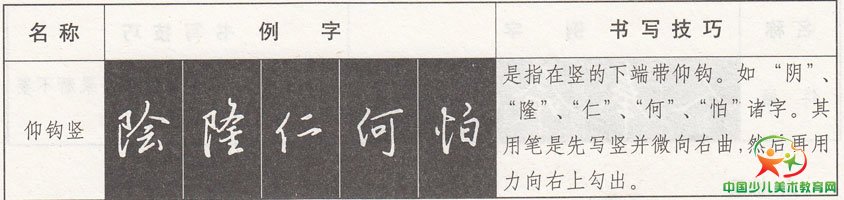 名称 例字 书写技巧
仰钩竖
陰 隆 仁 何 怕
是指在竖的下端带仰钩。如“阴”、
“隆”、“仁”、“何”、“怕”诸字。其
用笔是先写竖并微向右曲,然后再用
力向右上勾出。
中国少儿美术教育网